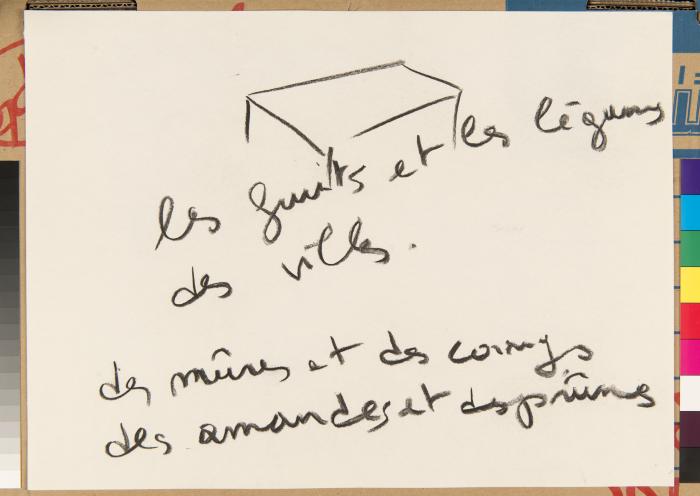 les fruits et les légumes
des villes.
des mûres et des coings
des amandes et des prûnes